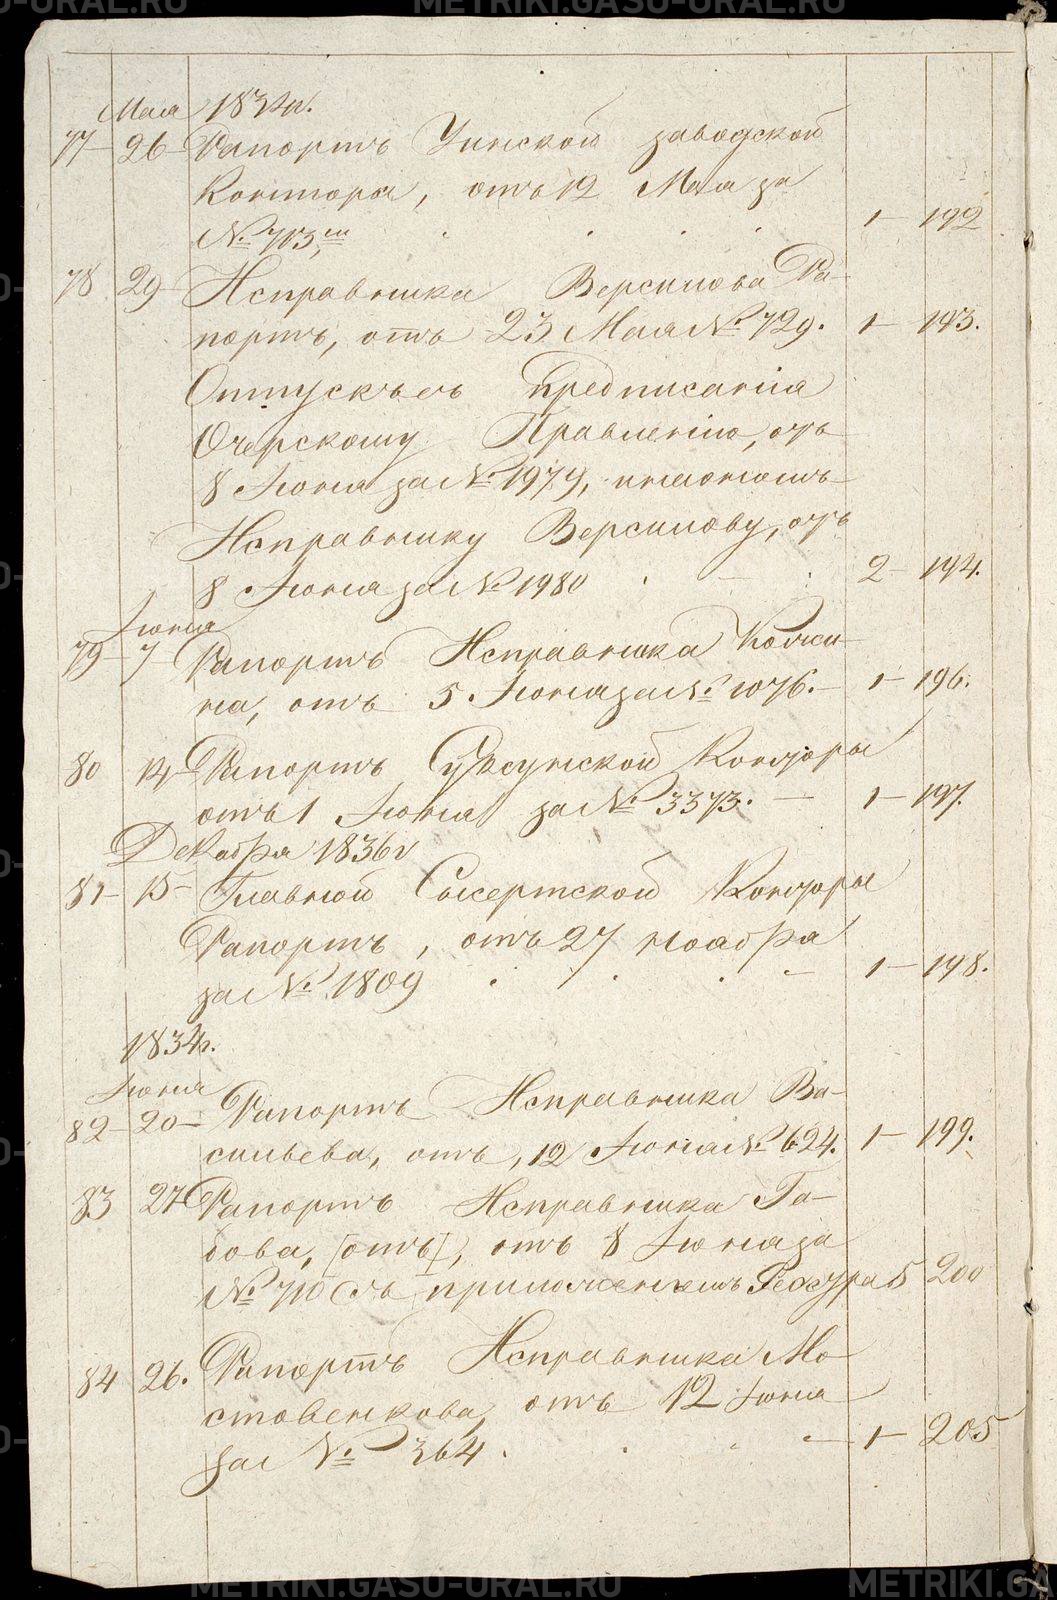 METRIKI.GASU-URAL.RU
Мая 1834г.
77 26 Рапортъ Уинской заводской
Конторы, отъ 12 Мая за
№ 713,ш 1 192
78 29 Исправника Версилова Ра-
портъ, отъ 23 Мая № 729. 1 193.
Отпускъ съ предписанія
Очерскому Правленію, отъ
8 Іюня за № 1979, и
Исправнику Версилову, отъ
8 Іюня за № 1980 2 194.
Іюня
79 7 Рапортъ Исправника
на, отъ 5 Іюня за № 1076. 1 196.
80 14 Рапортъ Суксунской Конторы
отъ 1 Іюня за № 3373. 1 197.
Декабря 1836г
81 15 Главной Сысертской Конторы
Рапортъ, отъ 27 ноября
за № 1809 1 198.
1834г.
Іюня
82 20 Рапортъ Исправника Ва-
сильева, отъ, 12 Іюня № 624. 1 199.
83 27 Рапортъ Исправника
[отъ], отъ 8 Іюня за
№ 710 съ приложеніемъ 5 200
84 26. Рапортъ Исправника Мо-
стовенкова, отъ 12 Іюня
за № 364. 1 205
METRIKI.GASU-URAL.RU
METRIKI.GA